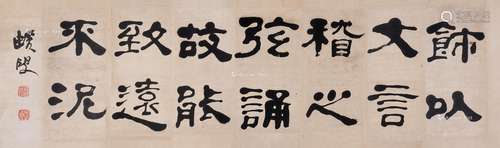 飾以
文言
稽之
弦誦
故能
致遠
不泥
蝯叟